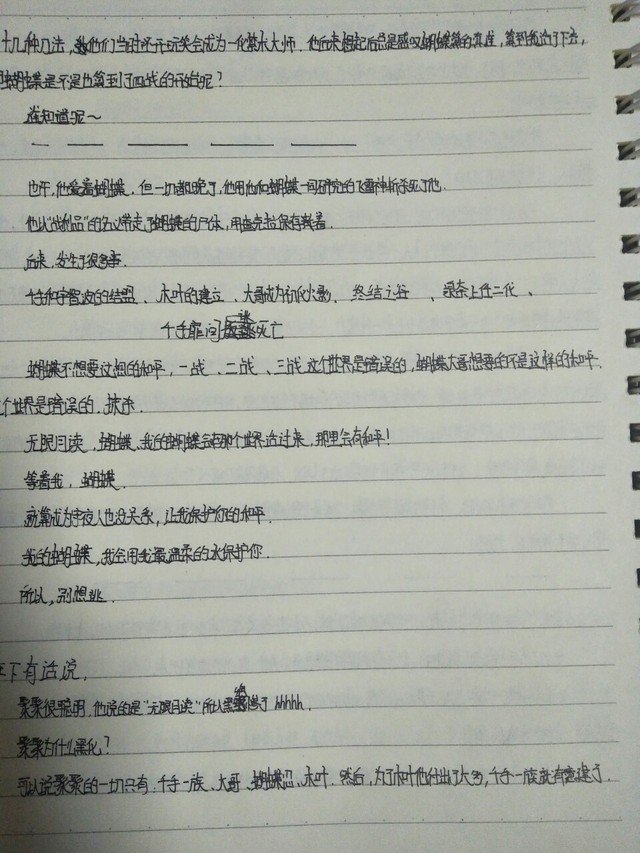 十几种刀法，他们当时还开玩笑会成为一代禁术大师．他后来想起后总是感叹蝴蝶算的真准，算到我边了下去，
蝴蝶是不是也算到了四战的开始呢？
谁知道呢～
也许，他爱着蝴蝶．但一切都晚了，他用他和蝴蝶一同研究的飞雷神斩杀死了他．
他以“战利品”的名义带走了蝴蝶的尸体，用查克拉保存着．
后来，发生了很多事．
千手和宇智波的结盟、木叶的建立、大哥成为初代火影、终结之谷、上任二代、
千手扉间死亡
蝴蝶不想要这相的和平，一战、二战、三战这个世界是错误的，蝴蝶大哥想要的不是这样的和平．
个世界是错误的．抹杀．
无限月读，蝴蝶，我的蝴蝶会在那个世界活过来，那里会有和平！
等着我，蝴蝶．
就算成为宇夜人也没关系，让我保护你的和平．
我的蝴蝶，我会用我最温柔的水保护你．
所以，别想逃．
下有话说．
聚聚很聪明，他说的是“无限月读”所以黑绝傻了 hhhhh．
聚聚为什么黑化？
可以说聚聚的一切只有：千手一族、大哥、蝴蝶、木叶．然后，为了木叶他付出了太多，千手一族就有意建了．